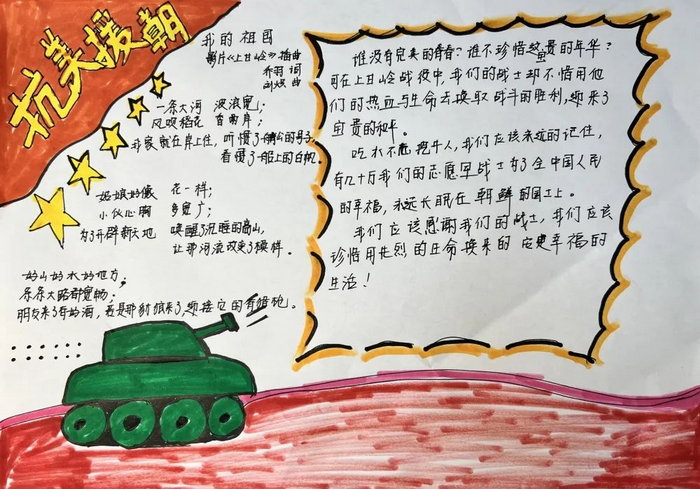 抗美援朝
我的祖国
影片《上甘岭》插曲
乔羽 词
刘炽 曲
一条大河 波浪宽;
风吹稻花 香两岸;
我家就在岸上住, 听惯了艄公的号子
看惯了船上的白帆。
姑娘好像 花一样;
小伙心胸 多宽广;
为了开辟新天地 唤醒了沉睡的高山,
让那河流改变了模样。
好山好水好地方;
条条大路都宽畅;
朋友来了有好酒, 若是那豺狼来了, 迎接它的有猎枪。
谁没有完美的青春? 谁不珍惜宝贵的年华?
可在上甘岭战役中, 我们的战士却不惜用他
们的热血与生命去换取战斗的胜利, 迎来了
宝贵的和平。
吃水不忘挖井人, 我们应该永远的记住,
有几十万我们的志愿军战士为了全中国人民
的幸福, 永远长眠在朝鲜的国土上。
我们应该感谢我们的战士, 我们应该
珍惜用先烈的生命换来的安定幸福的
生活!